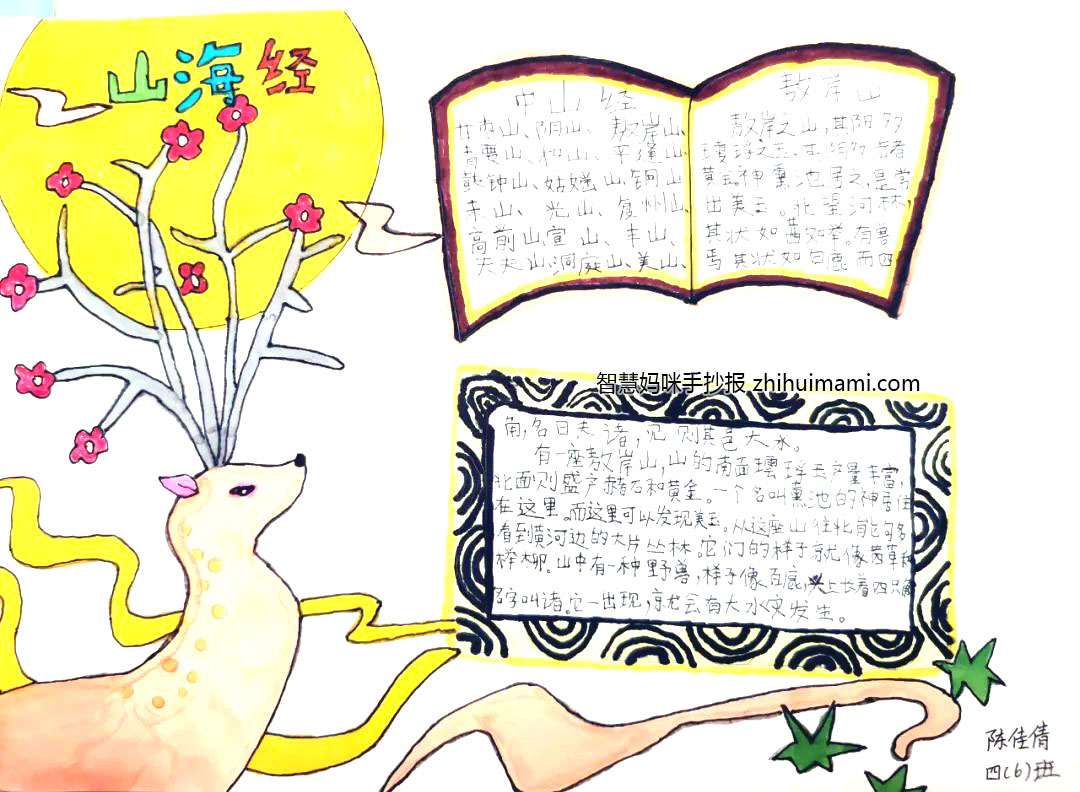 山海经
中山经
甘枣山、阴山、敖岸山、
青要山、和山、平逢山、
鼓钟山、姑媱山、铜山
朱山、光山、复州山、
高前山宣山、丰山、
夫夫山、洞庭山、美山、
敖岸山
敖岸之山,其阳多
㻬琈之玉,其阴多赭
黄金。神熏池居之。是常
出美玉。北望河林,
其状如茜如举。有兽
焉其状如白鹿而四
智慧妈咪手抄报 zhihuimami.com
角,名曰夫诸,见则其邑大水。
有一座敖岸山,山的南面㻬琈玉产量丰富,
北面则盛产赭石和黄金。一个名叫熏池的神居住
在这里。而这里可以发现美玉。从这座山往北能够多
看到黄河边的大片丛林。它们的样子就像茜草和
榉木柳。山中有一种野兽,样子像白鹿,头上长着四只角
名字叫诸。它一出现,就会有大水灾发生。
陈佳倩
四(6)班